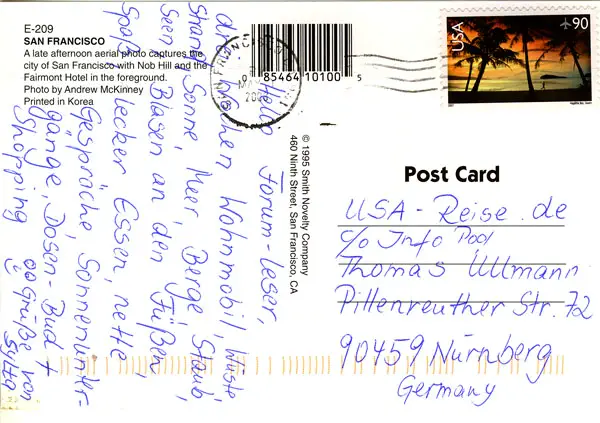 E-209
SAN FRANCISCO
A late afternoon aerial photo captures the
city of San Francisco with Nob Hill and the
Fairmont Hotel in the foreground.
Photo by Andrew McKinney
Printed in Korea
85464 10100 5
© 1995 Smith Novelty Company
460 Ninth Street, San Francisco, CA
SAN FRANCISCO
USA
90
Hello Forum-Leser,
drei Wochen Wohnmobil, Wüste,
Strand, Sonne, Meer, Berge, Staub,
Seen, Blasen an den Füßen,
Spaß, lecker Essen, nette
Gespräche, Sonnenunter-
gänge, Dosen-Bud +
Shopping
Grüße von
Sylza
Post Card
USA-Reise.de
c/o Info Pool
Thomas Ullmann
Pillenreuther Str. 72
90459 Nürnberg
Germany